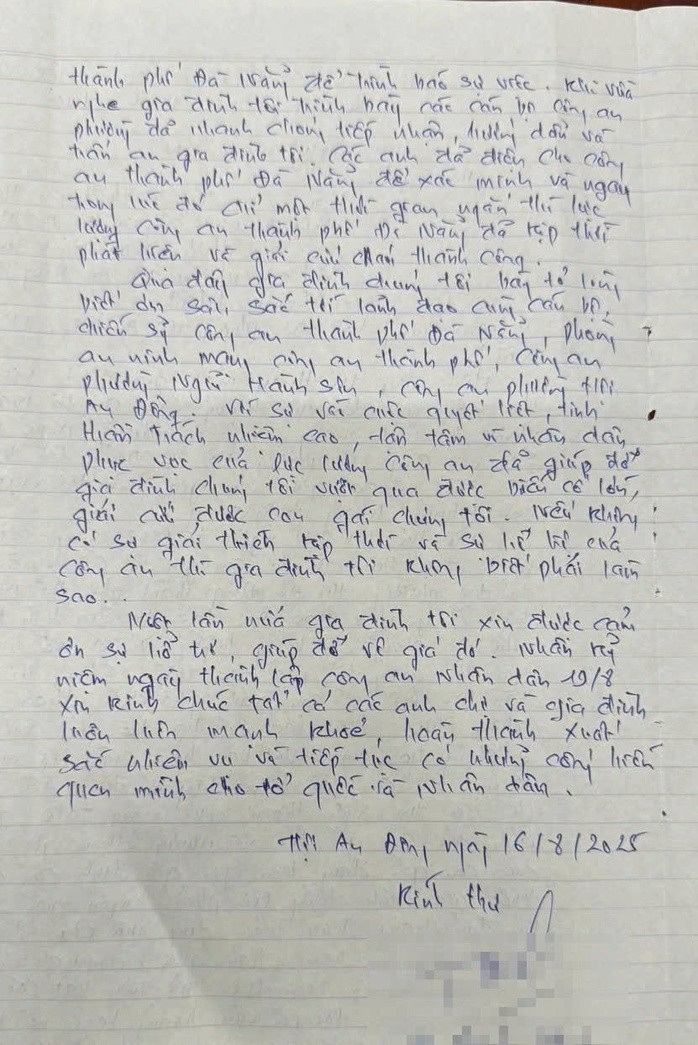 thành phố Đà Nẵng để trình báo sự việc. Khi vừa
nghe gia đình tôi trình bày các cán bộ công an
phường đã nhanh chóng tiếp nhận, hướng dẫn và
trấn an gia đình tôi. Các anh đã điện cho công
an thành phố Đà Nẵng để xác minh và ngay
trong lúc đó chỉ một thời gian ngắn thì lực
lượng công an thành phố Đà Nẵng đã kịp thời
phát hiện và giải cứu cháu thành công.
Qua đây gia đình chúng tôi bày tỏ lòng
biết ơn sâu sắc tới lãnh đạo cùng cán bộ,
chiến sỹ công an thành phố Đà Nẵng, phòng
an ninh mạng công an thành phố, công an
phường Ngũ Hành Sơn, công an phường Hội
An Đông. Với sự vào cuộc quyết liệt, tinh
thần trách nhiệm cao, tận tâm vì nhân dân
phục vụ của lực lượng công an đã giúp đỡ
gia đình chúng tôi vượt qua được biến cố lớn,
giải cứu được con gái chúng tôi. Nếu không
có sự giải thích kịp thời và sự hỗ trợ của
công an thì gia đình tôi không biết phải làm
sao...
Một lần nữa gia đình tôi xin được cảm
ơn sự hỗ trợ, giúp đỡ vô giá đó. Nhân kỷ
niệm ngày thành lập công an nhân dân 19/8
xin kính chúc tất cả các anh chị và gia đình
luôn luôn mạnh khoẻ, hoàn thành xuất
sắc nhiệm vụ và tiếp tục có những cống hiến
quên mình cho tổ quốc và nhân dân.
Hội An Đông, ngày 16/8/2025
Kính thư